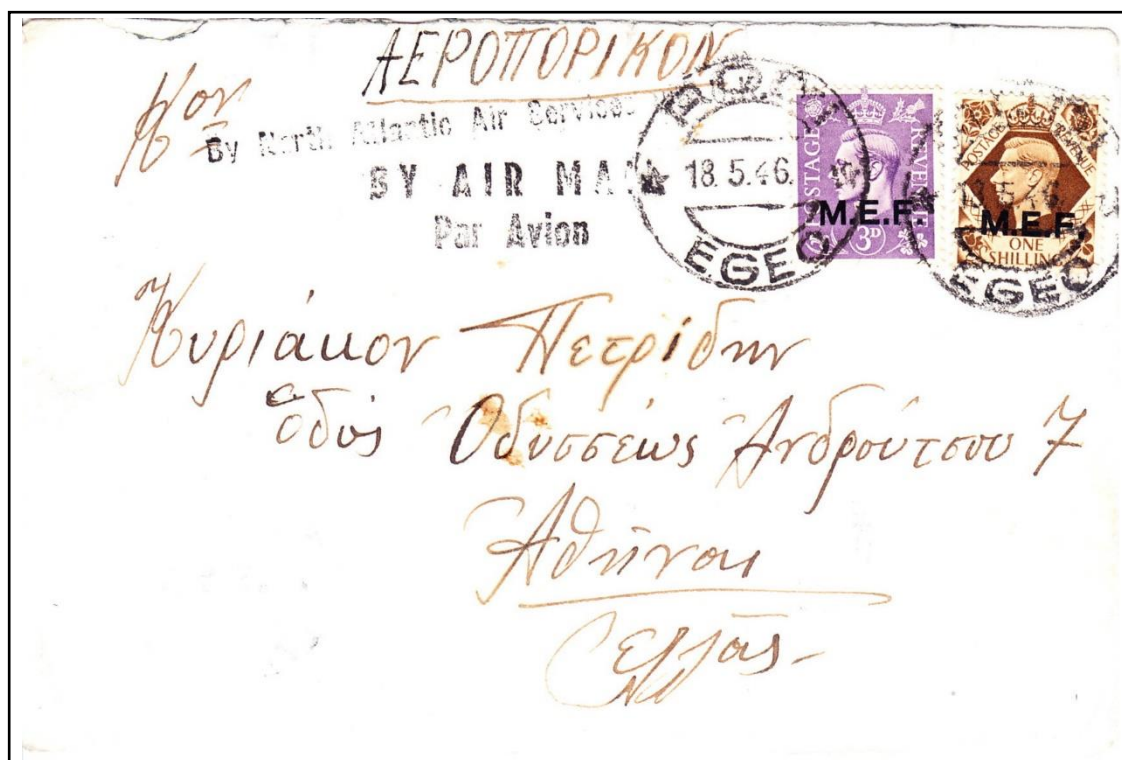 ΑΕΡΟΠΟΡΙΚΟΝ
Κον
By North Atlantic Air Service
BY AIR MAIL
Par Avion
18.5.46.
EGEO
POSTAGE REVENUE
M.E.F.
3D
POSTAGE REVENUE
M.E.F.
ONE
SHILLING
EGEO
Κυριάκον Πετρίδην
οδός Οδυσσέως Ανδρούτσου 7
Αθήναι
Ελλάς-